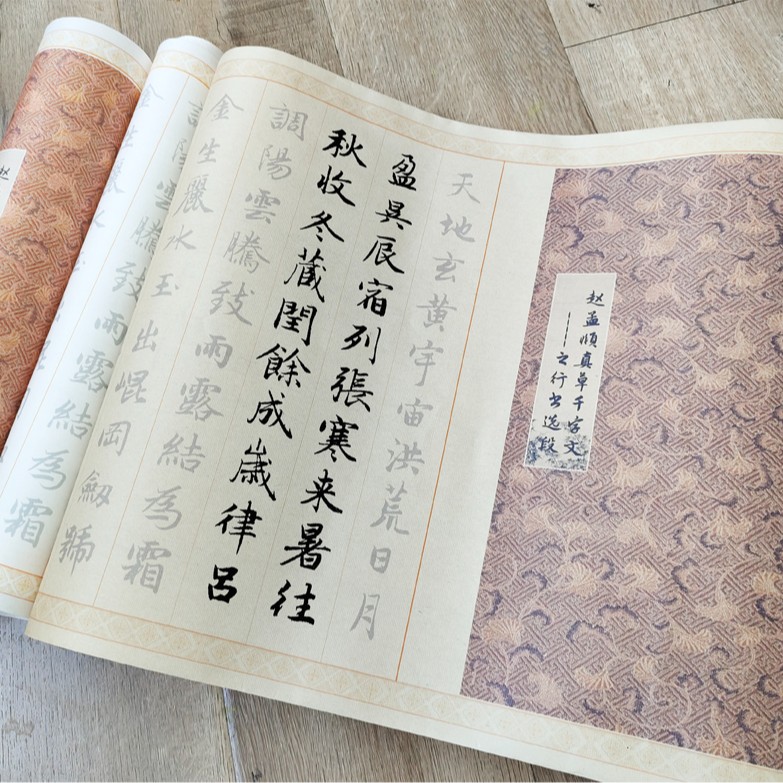 赵孟頫真草千字文
——之行书选段
天地玄黄宇宙洪荒日月
盈昃辰宿列張寒来暑往
秋收冬蔵閏餘成歳律呂
調陽雲騰致雨露結為霜
金生麗水玉出崐岡劔號
調陽雲騰致雨露結為霜
赵